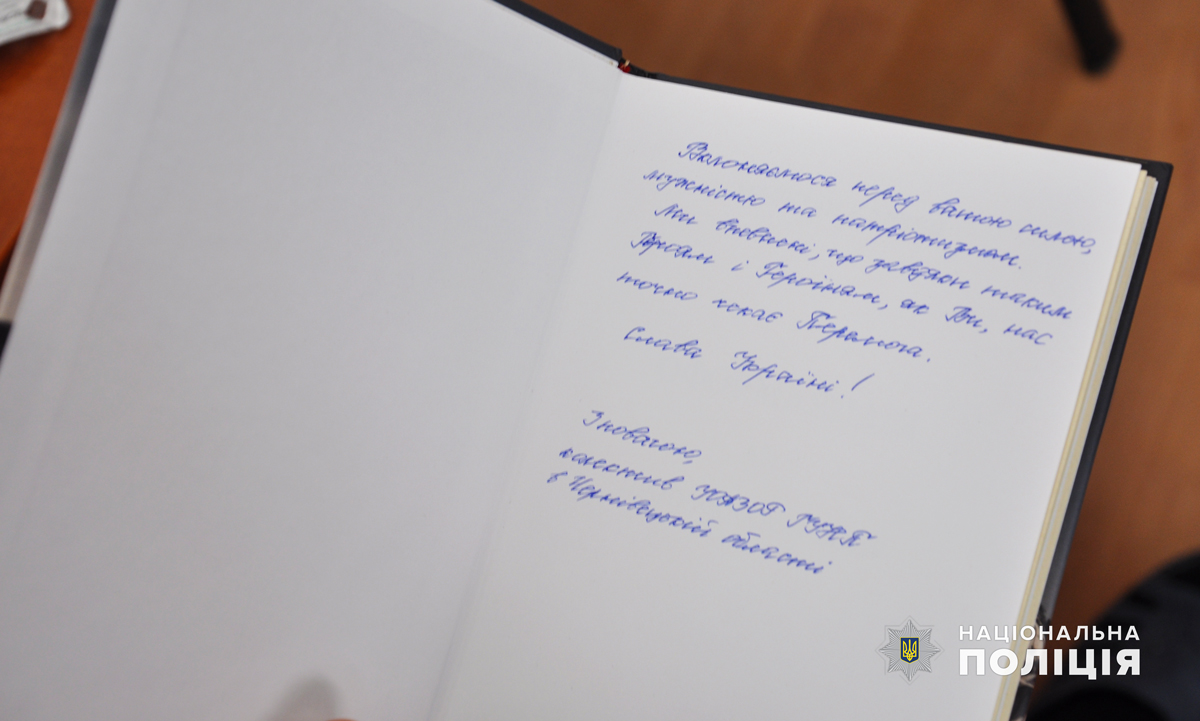 Вклоняємося перед вашою силою,
мужністю та патріотизмом.
Ми впевнені, що завдяки таким
Героям і Героїням, як Ви, нас
точно чекає Перемога.
Слава Україні!
З повагою,
колектив УОАЗОР ГУНП
в Чернівецькій області
НАЦІОНАЛЬНА
ПОЛІЦІЯ